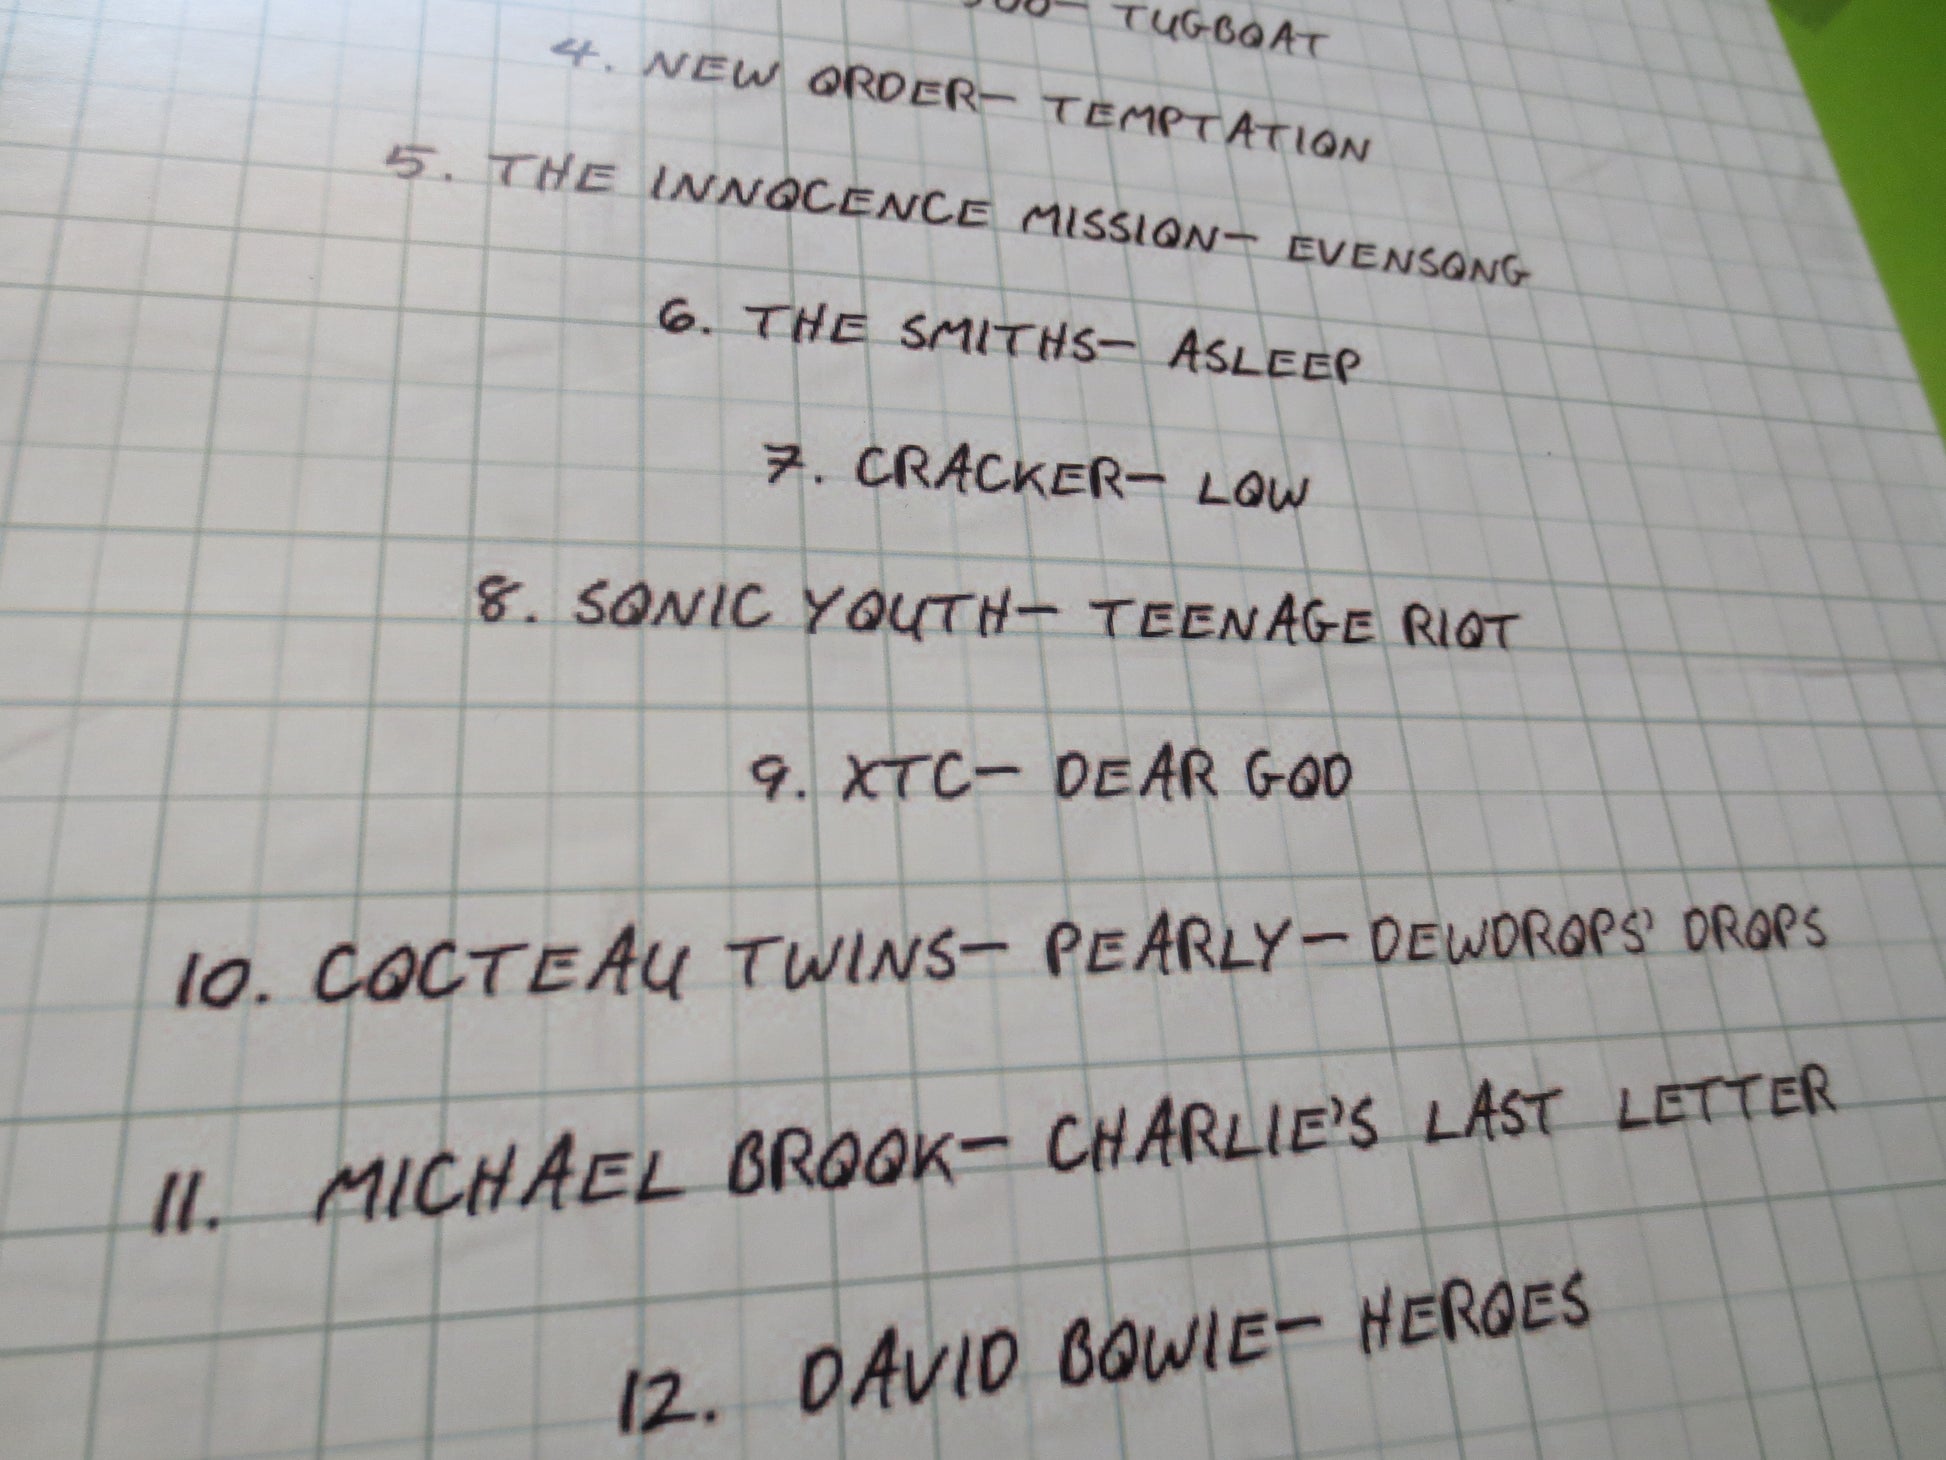 TUGBOAT
4. NEW ORDER— TEMPTATION
5. THE INNOCENCE MISSION— EVENSONG
6. THE SMITHS— ASLEEP
7. CRACKER— LOW
8. SONIC YOUTH— TEENAGE RIOT
9. XTC— DEAR GOD
10. COCTEAU TWINS— PEARLY—DEWDROPS' DROPS
11. MICHAEL BROOK— CHARLIE'S LAST LETTER
12. DAVID BOWIE— HEROES